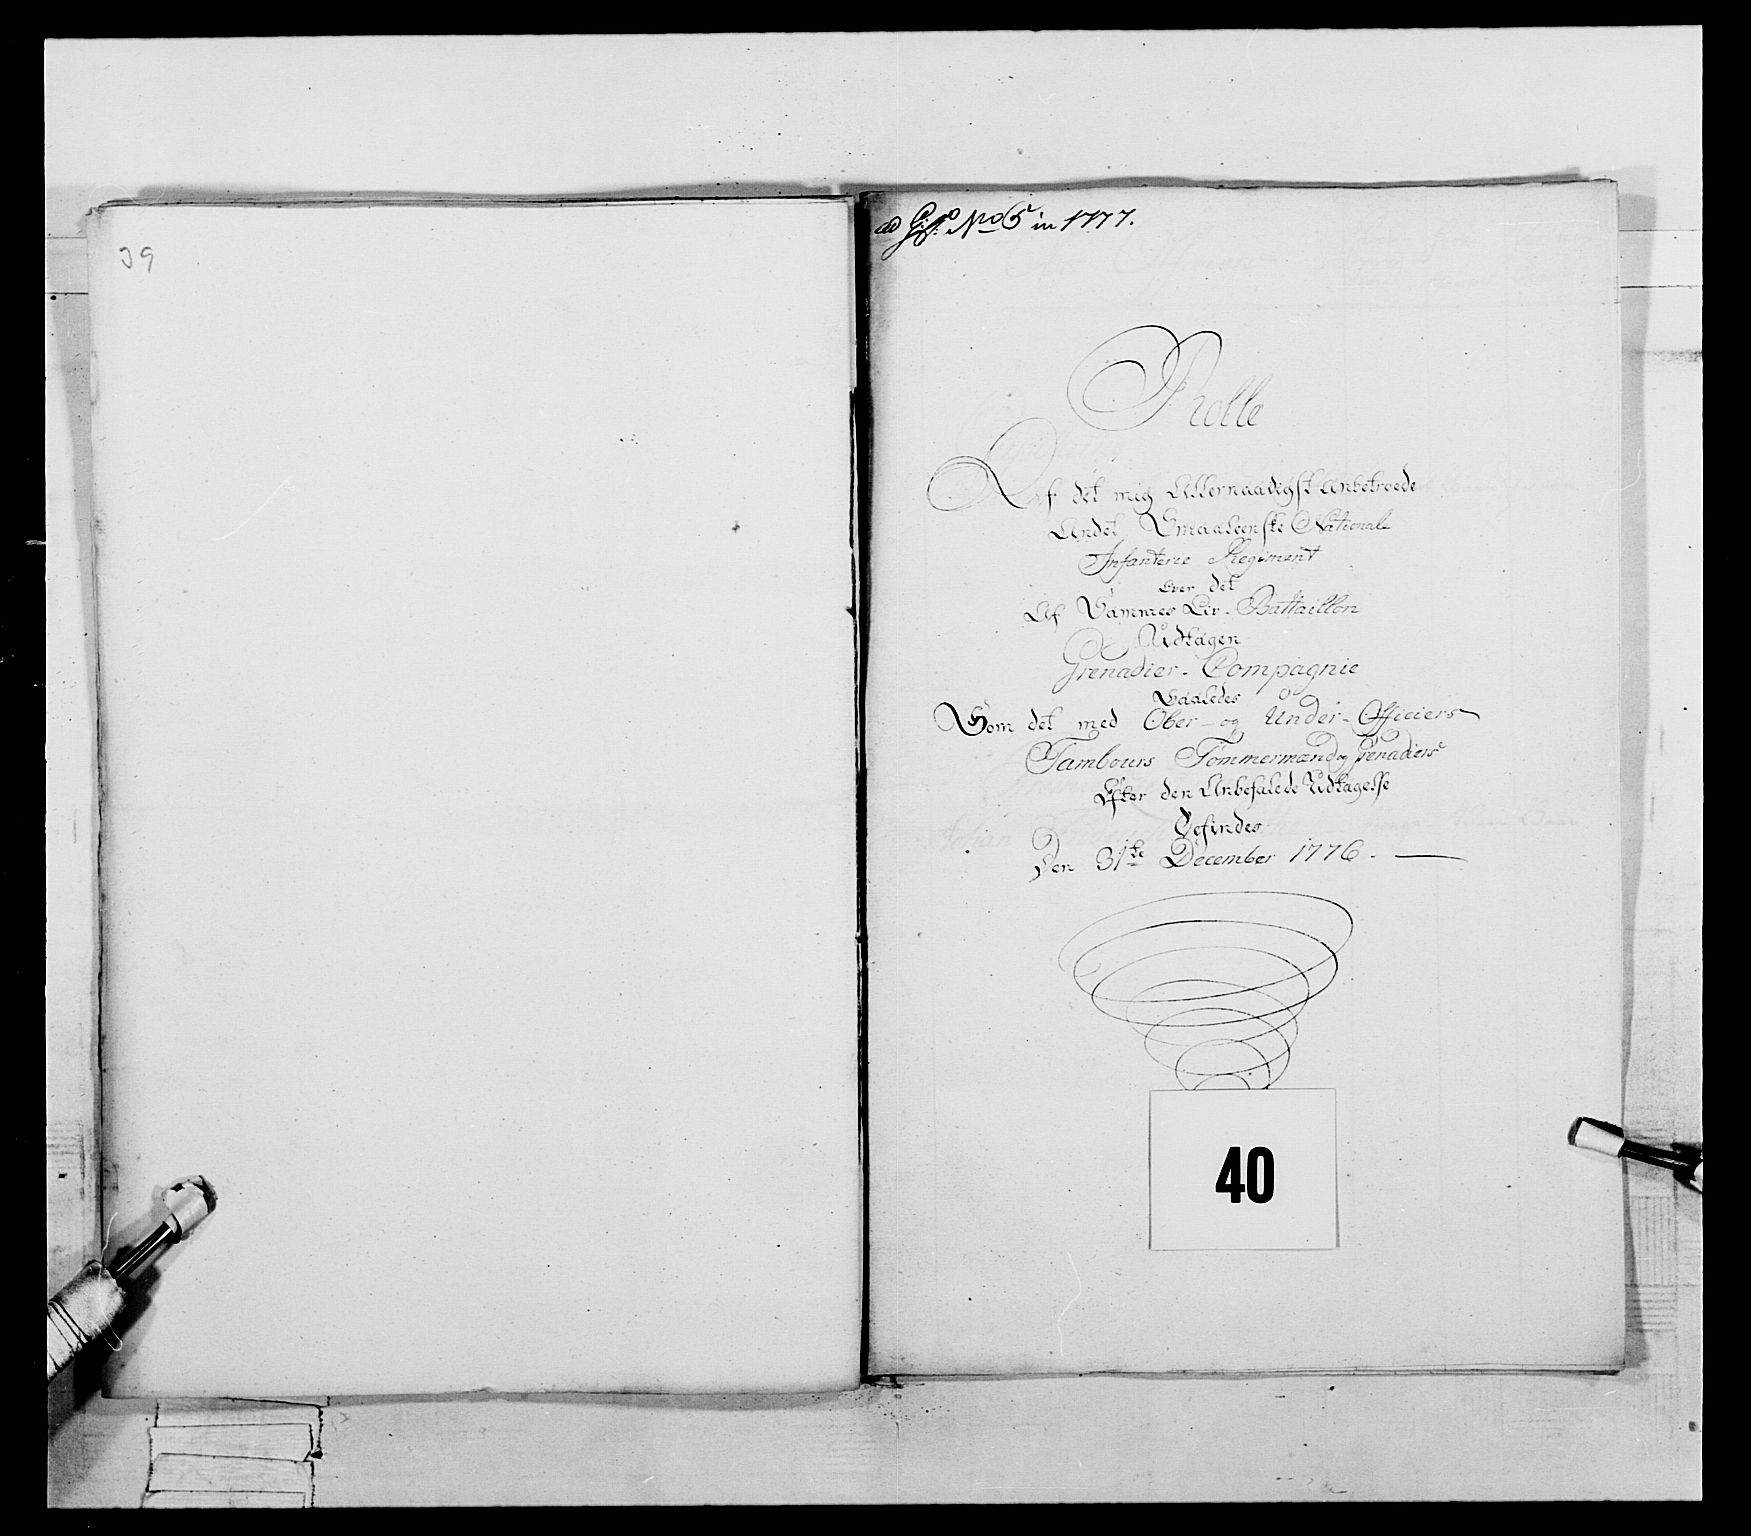 39
ad No 5 in 1777.
Rolle
Af det mig Allernaadigst Anbetroede
Andet Smaaleenske National
Infanterie Regiment
over det
Af Samme Liv-Battaillon
Udtagen
Grenadier-Compagnie
Saaledes
Som det med Ober- og Under-Officiers
Tambours Tømmermænd og Grenadiers
Efter den Anbefalede Udtagelse
Befindes
Den 31te December 1776.
40